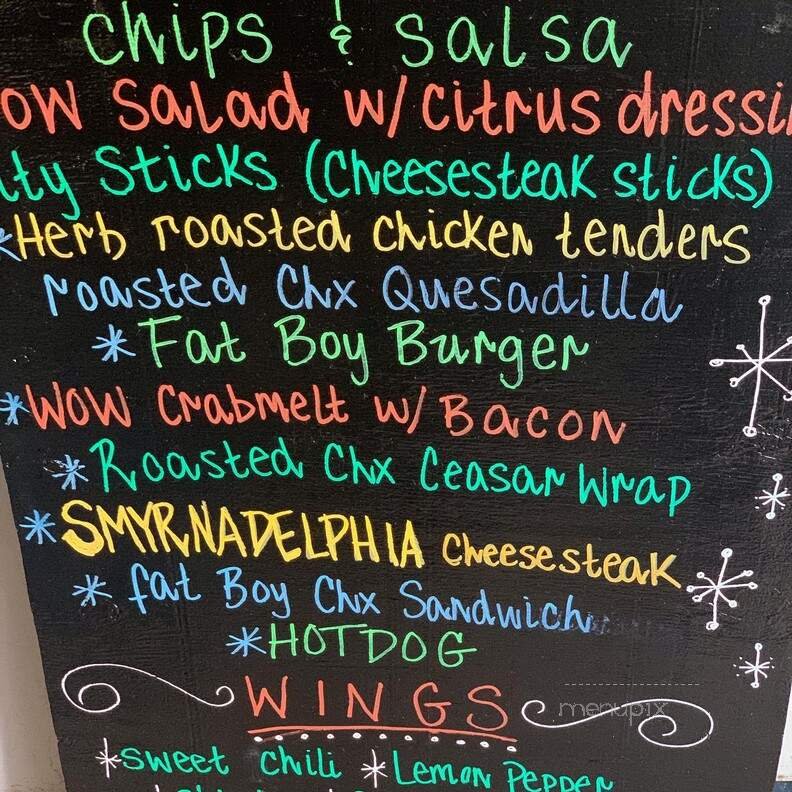 chips & salsa
ow Salad w/ citrus dressi
ity Sticks (Cheesesteak sticks)
*Herb roasted chicken tenders
roasted Chx Quesadilla
*Fat Boy Burger
*WOW Crabmelt w/ Bacon
*Roasted Chx Ceasar Wrap
*SMYRNADELPHIA Cheesesteak
*fat Boy Chx Sandwich
*HOTDOG
WINGS
menupix
*sweet chili *Lemon Pepper